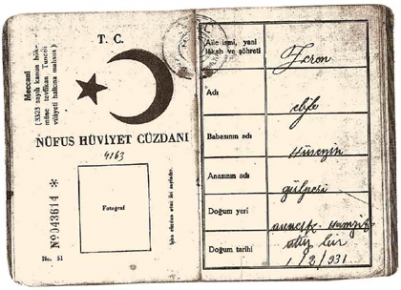 T. C.
Meccani
(3523 sayılı kanun hük-
müne tevfikan Tunceli
vilâyeti halkına mahsus)
NÜFUS HÜVİYET CÜZDANI
4163
Fotograf
No 043614 *
No. 51
Aile ismi, yani
lâkab ve şöhreti
Zeron
Adı
elife
Babasının adı
Hüseyin
Anasının adı
gülperi
Doğum yeri
Doğum tarihi
1/2/931